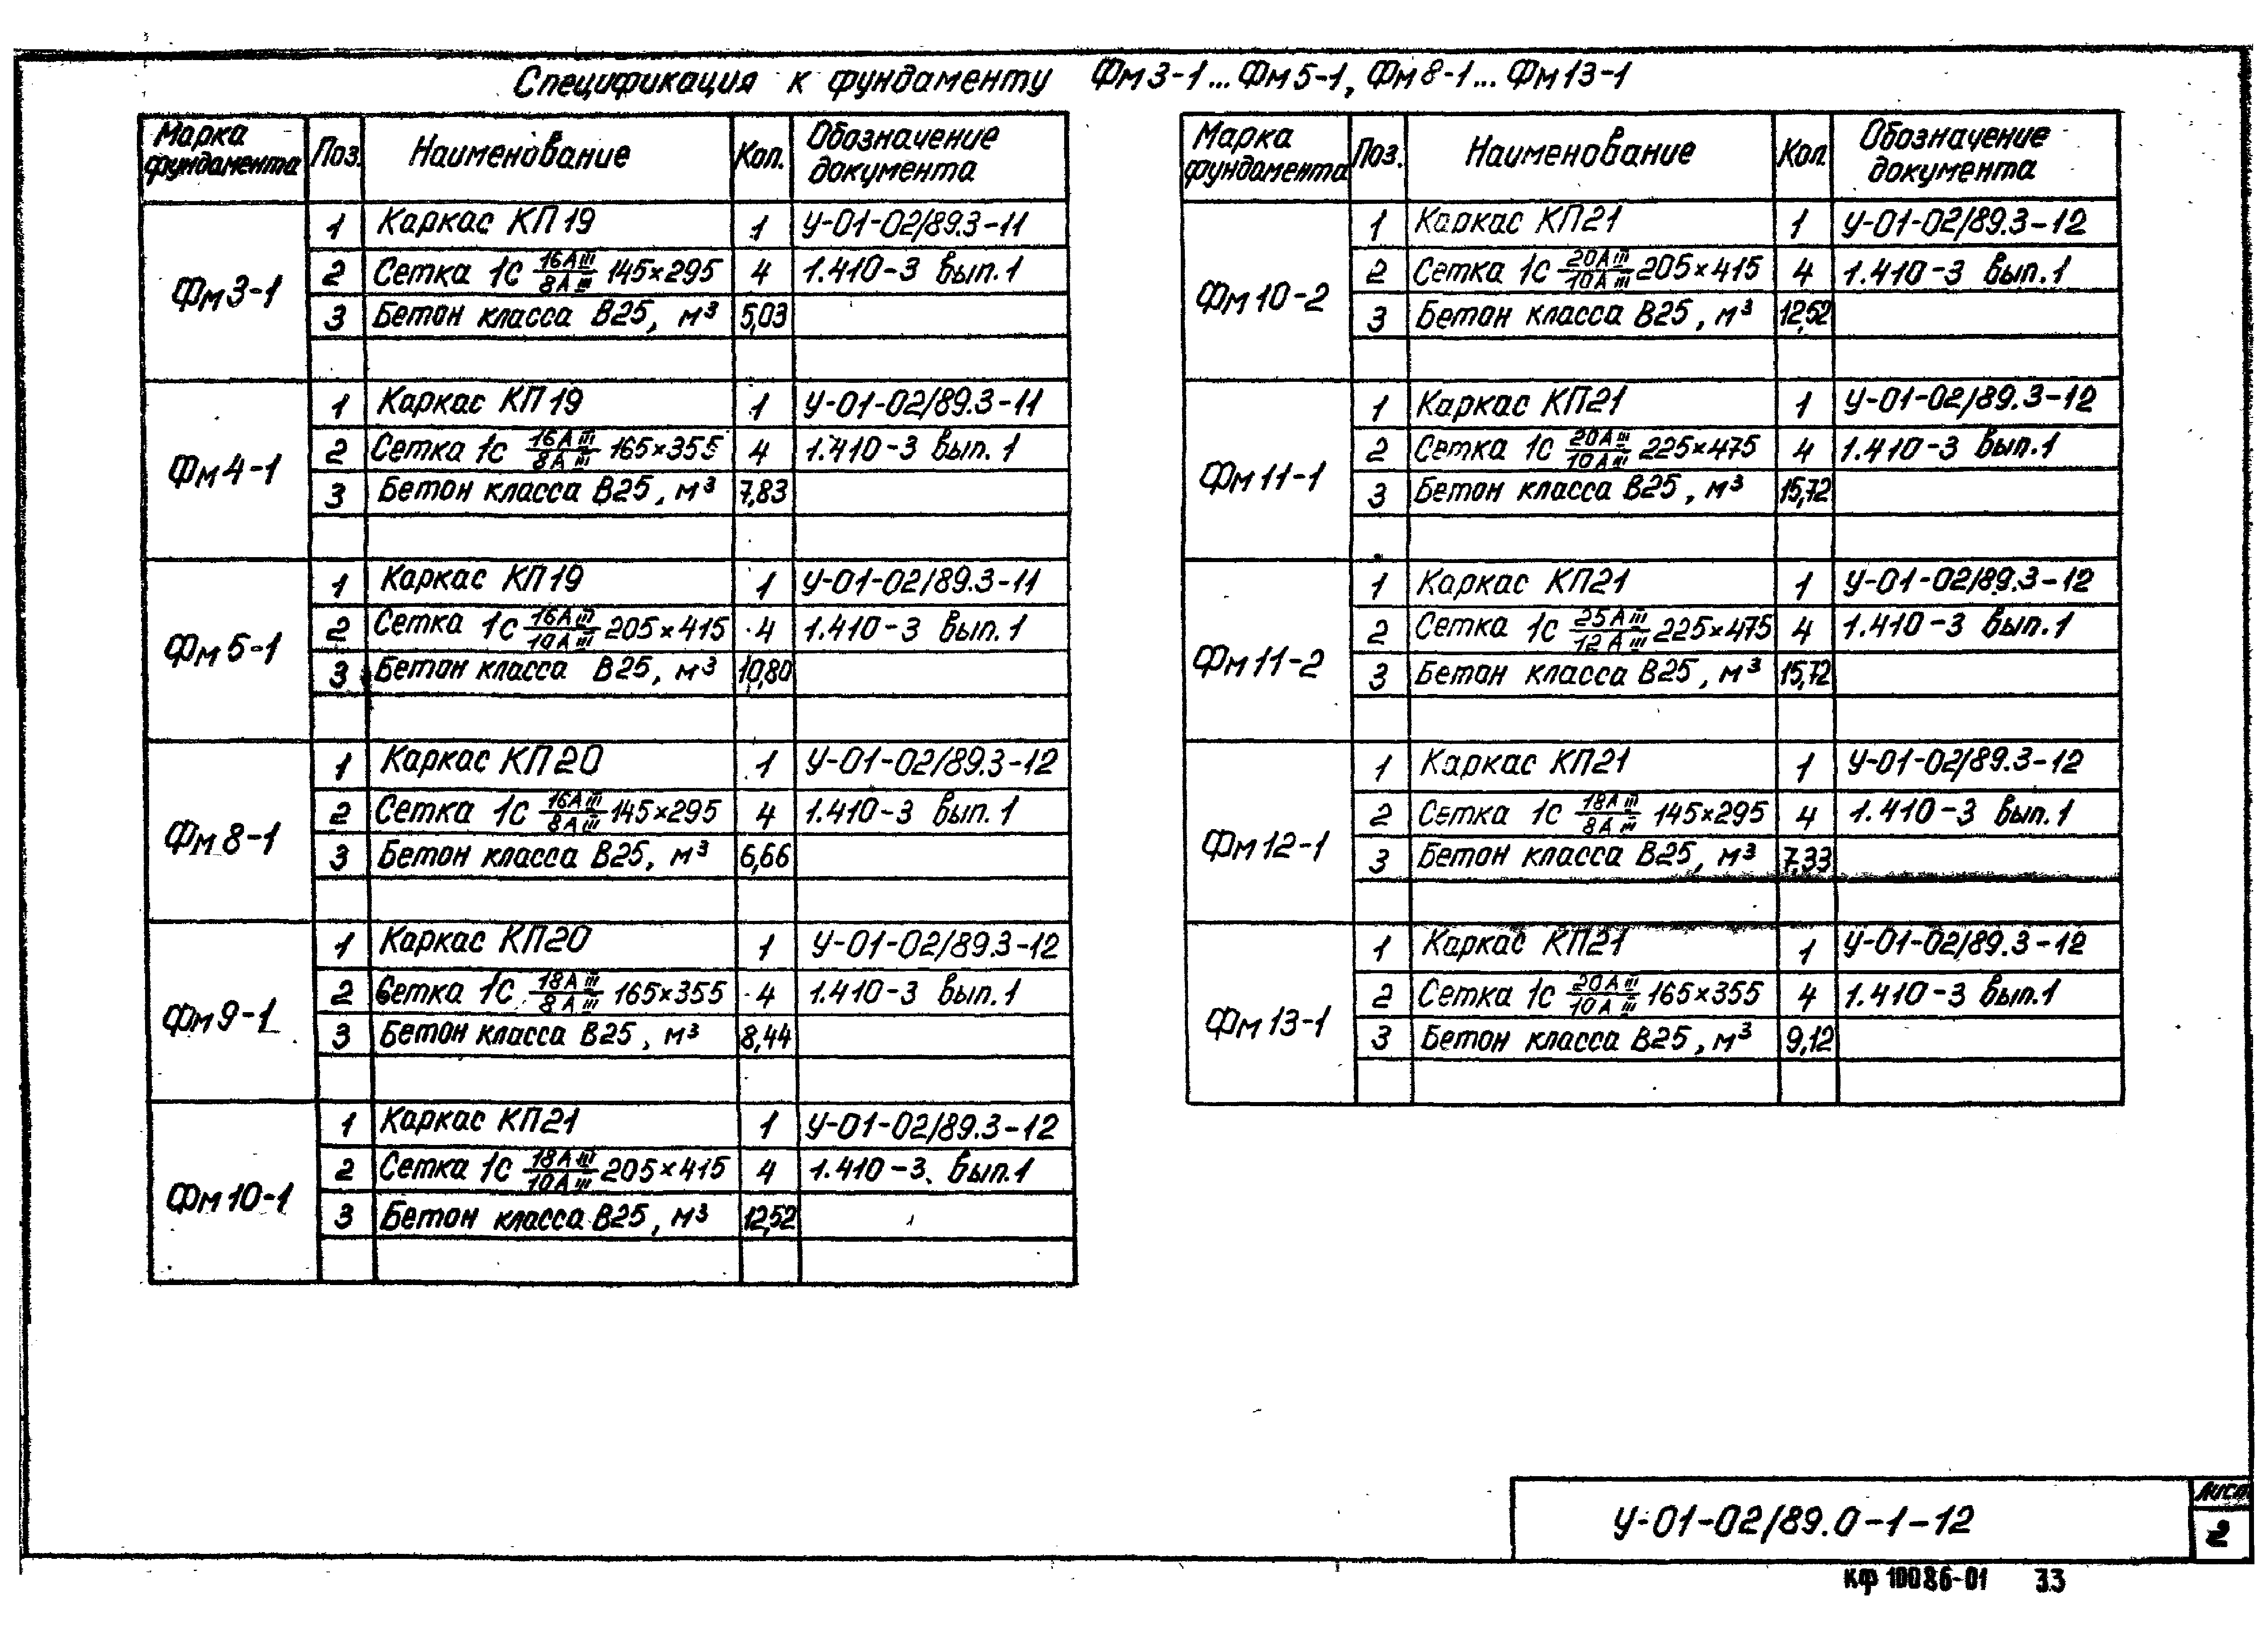 Спецификация к фундаменту Фм3-1...Фм5-1, Фм8-1... Фм13-1
Марка фундамента Поз. Наименование Кол. Обозначение документа
Фм3-1
1 Каркас КП19 1 У-01-02/89.3-11
2 Сетка 1с 16АIII/8АIII 145×295 4 1.410-3 вып.1
3 Бетон класса В25, м³ 5,03
Фм4-1
1 Каркас КП19 1 У-01-02/89.3-11
2 Сетка 1с 16АIII/8АIII 165×355 4 1.410-3 вып.1
3 Бетон класса В25, м³ 7,83
Фм5-1
1 Каркас КП19 1 У-01-02/89.3-11
2 Сетка 1с 16АIII/10АIII 205×415 4 1.410-3 вып.1
3 Бетон класса В25, м³ 10,80
Фм8-1
1 Каркас КП20 1 У-01-02/89.3-12
2 Сетка 1с 16АIII/8АIII 145×295 4 1.410-3 вып.1
3 Бетон класса В25, м³ 6,66
Фм9-1
1 Каркас КП20 1 У-01-02/89.3-12
2 Сетка 1с 18АIII/8АIII 165×355 4 1.410-3 вып.1
3 Бетон класса В25, м³ 8,44
Фм10-1
1 Каркас КП21 1 У-01-02/89.3-12
2 Сетка 1с 18АIII/10АIII 205×415 4 1.410-3 вып.1
3 Бетон класса В25, м³ 12,52
Марка фундамента Поз. Наименование Кол. Обозначение документа
Фм10-2
1 Каркас КП21 1 У-01-02/89.3-12
2 Сетка 1с 20АIII/10АIII 205×415 4 1.410-3 вып.1
3 Бетон класса В25, м³ 12,52
Фм11-1
1 Каркас КП21 1 У-01-02/89.3-12
2 Сетка 1с 20АIII/10АIII 225×475 4 1.410-3 вып.1
3 Бетон класса В25, м³ 15,72
Фм11-2
1 Каркас КП21 1 У-01-02/89.3-12
2 Сетка 1с 25АIII/12АIII 225×475 4 1.410-3 вып.1
3 Бетон класса В25, м³ 15,72
Фм12-1
1 Каркас КП21 1 У-01-02/89.3-12
2 Сетка 1с 18АIII/8АIII 145×295 4 1.410-3 вып.1
3 Бетон класса В25, м³ 7,33
Фм13-1
1 Каркас КП21 1 У-01-02/89.3-12
2 Сетка 1с 20АIII/10АIII 165×355 4 1.410-3 вып.1
3 Бетон класса В25, м³ 9,12
У-01-02/89.0-1-12
Лист
2
КФ 10086-01 33